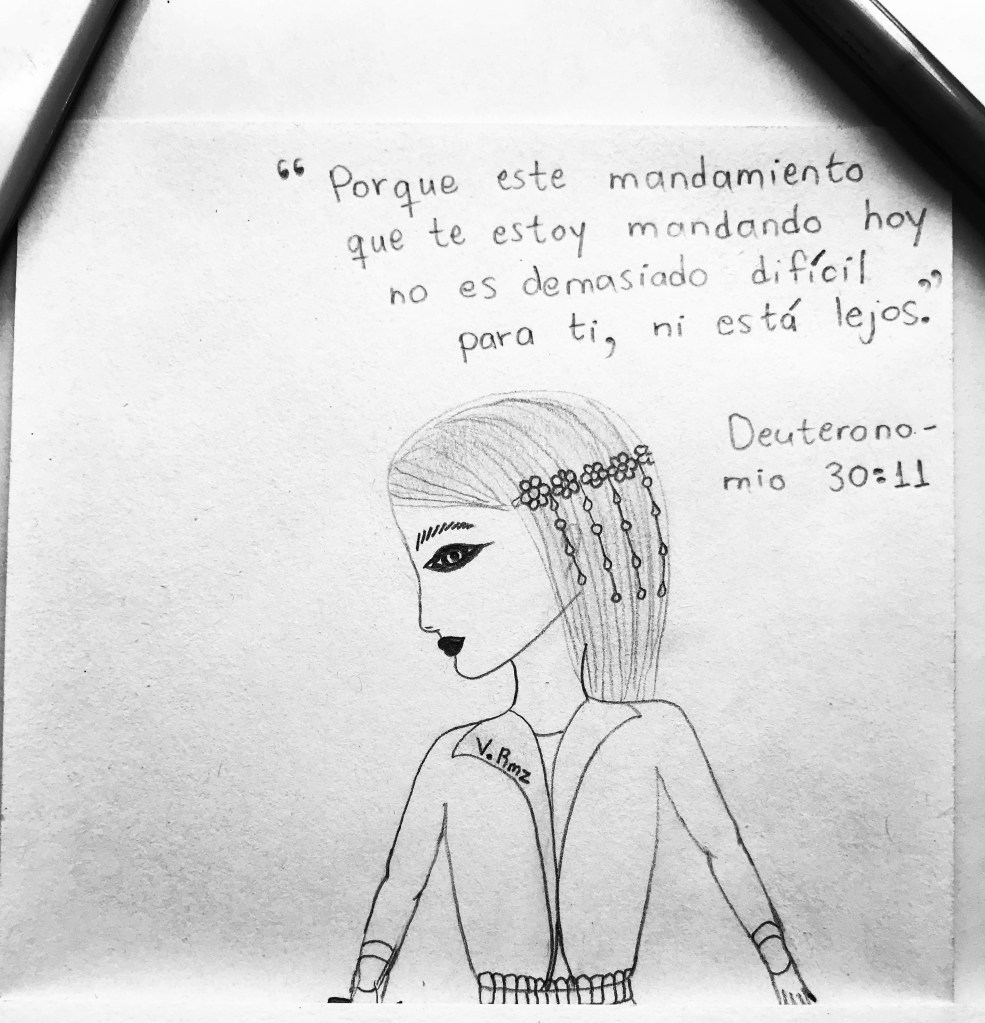 “ Porque este mandamiento
que te estoy mandando hoy
no es demasiado difícil
para ti, ni está lejos. ”
Deuterono-
mio 30:11
V. Rmz